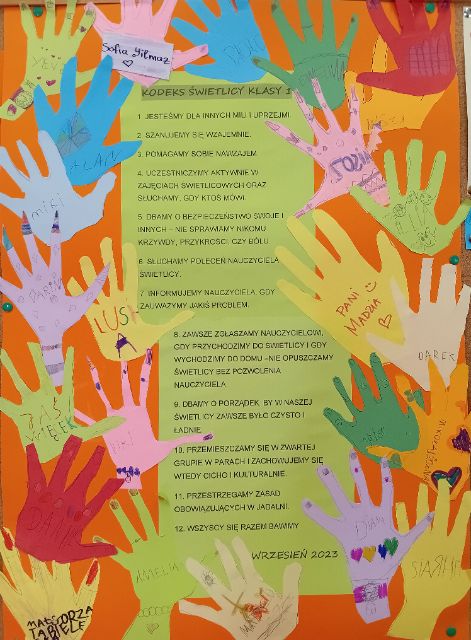 Sofia Yilmaz
KODEKS ŚWIETLICY KLASY 1
1. JESTEŚMY DLA INNYCH MILI I UPRZEJMI.
2. SZANUJEMY SIĘ WZAJEMNIE.
3. POMAGAMY SOBIE NAWZAJEM.
4. UCZESTNICZYMY AKTYWNIE W
ZAJĘCIACH ŚWIETLICOWYCH ORAZ
SŁUCHAMY, GDY KTOŚ MÓWI.
5. DBAMY O BEZPIECZEŃSTWO SWOJE I
INNYCH – NIE SPRAWIAMY NIKOMU
KRZYWDY, PRZYKROŚCI, CZY BÓLU.
6. SŁUCHAMY POLECEŃ NAUCZYCIELA
ŚWIETLICY.
7. INFORMUJEMY NAUCZYCIELA, GDY
ZAUWAŻYMY JAKIŚ PROBLEM.
8. ZAWSZE ZGŁASZAMY NAUCZYCIELOWI,
GDY PRZYCHODZIMY DO ŚWIETLICY I GDY
WYCHODZIMY DO DOMU –NIE OPUSZCZAMY
ŚWIETLICY BEZ POZWOLENIA
NAUCZYCIELA
9. DBAMO O PORZĄDEK, BY W NASZEJ
ŚWIETLICY ZAWSZE BYŁO CZYSTO I
ŁADNIE.
10. PRZEMIESZCZAMY SIĘ W ZWARTEJ
GRUPIE W PARACH I ZACHOWUJEMY SIĘ
WTEDY CICHO I KULTURALNIE.
11. PRZESTRZEGAMY ZASAD
OBOWIĄZUJĄCYCH W JADALNI.
12. WSZYSCY SIĘ RAZEM BAWIMY
WRZESIEŃ 2023
ALAN
MIKI
PANI
MADZIA
DAREK
AMELIA